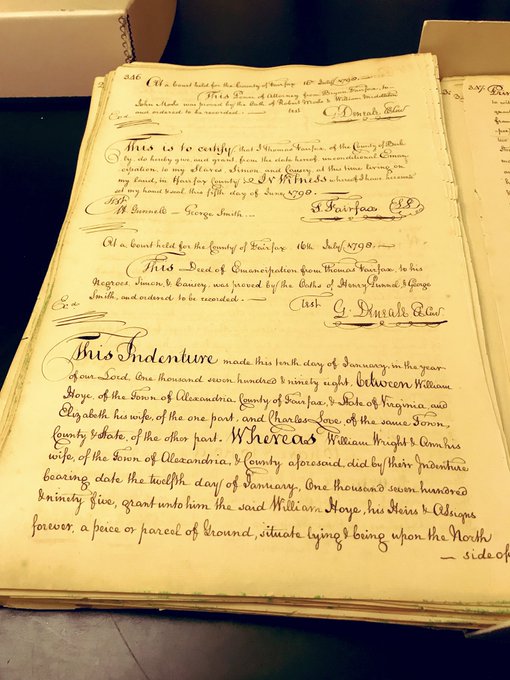 346
At a Court held for the County of Fairfax 16th July 1798. —
This Power of Attorney from Bryan Fairfax, to
John Moss was proved by the Oath of Robert Moss & William Middleton
and ordered to be recorded. —
Test
Exd
G. Deneale Cl. Cur
This is to certify, that I Thomas Fairfax, of the County of
ly, do hereby give, and grant, from the date hereof, unconditional Eman-
cipation, to my Slaves Simon, and Causey, at this time living on
my land, in Fairfax County & In Witness whereof I have hereunto
set my hand & seal this fifth day of June 1798. —
Test
H. Gunnell — George Smith...
T. Fairfax
At a Court held for the County of Fairfax 16th July 1798. —
This — Deed of Emancipation from Thomas Fairfax, to his
Negroes, Simon, & Causey, was proved by the Oaths of Henry Gunnel, & George
Smith, and ordered to be recorded. —
Test
Exd
G. Deneale Cl. Cur
This Indenture made this tenth day of January, in the year
of our Lord, One thousand seven hundred & ninety eight, between William
Hoye, of the Town of Alexandria, County of Fairfax, & State of Virginia, and
Elizabeth his wife, of the one part, and Charles Love, of the same Town,
County & State, of the other part. Whereas William Wright & Ann his
wife, of the Town of Alexandria, & County aforesaid, did by their Indenture
bearing date the twelfth day of January, One thousand seven hundred
& ninety five, grant unto him the said William Hoye, his Heirs & Assigns
forever, a peice or parcel of Ground, situate lying & being upon the North
— side of